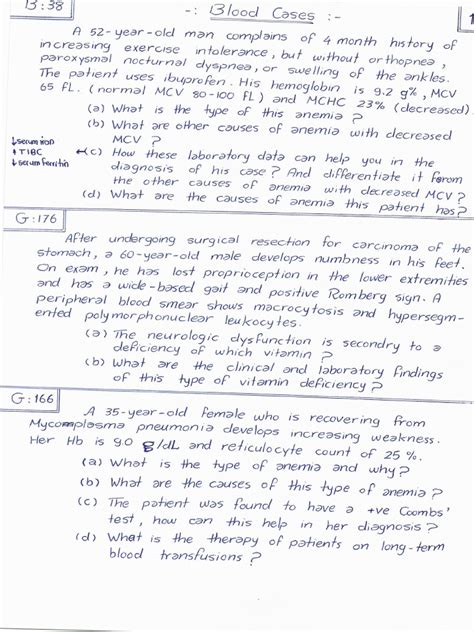 B:38
-: Blood Cases :-
1
A 52-year-old man complains of 4 month history of
increasing exercise intolerance, but without orthopnea,
paroxysmal nocturnal dyspnea, or swelling of the ankles.
The patient uses ibuprofen. His hemoglobin is 9.2 g%, MCV
65 fL. (normal MCV 80-100 fL) and MCHC 23% (decreased).
(a) What is the type of this anemia?
(b) What are other causes of anemia with decreased
MCV ?
↓serum iron
↑TIBC
↓serum ferritin
(c) How these laboratory data can help you in the
diagnosis of his case? And differentiate it from
the other causes of anemia with decreased MCV ?
(d) What are the causes of anemia this patient has?
G:176
After undergoing surgical resection for carcinoma of the
stomach, a 60-year-old male develops numbness in his feet.
On exam, he has lost proprioception in the lower extremities
and has a wide-based gait and positive Romberg sign. A
peripheral blood smear shows macrocytosis and hypersegm-
ented polymorphonuclear leukocytes.
(a) The neurologic dysfunction is secondry to a
deficiency of which vitamin ?
(b) What are the clinical and laboratory findings
of this type of vitamin deficiency ?
G:166
A 35-year-old female who is recovering from
Mycomplasma pneumonia develops increasing weakness.
Her Hb is 9.0 g/dL and reticulocyte count of 25 %.
(a) What is the type of anemia and why?
(b) What are the causes of this type of anemia ?
(c) The patient was found to have a +ve Coombs'
test, how can this help in her diagnosis ?
(d) What is the therapy of patients on long-term
blood transfusions ?